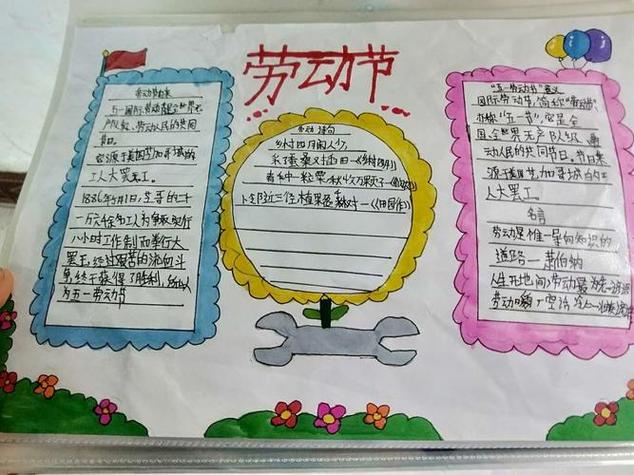 劳动节
劳动节由来
五一国际劳动节是全世界无
产阶级、劳动人民的共同
节日。
它源于美国芝加哥城的
工人大罢工。
1886年5月1日,芝哥的二十
一万六千余名工人为争取实行
八小时工作制而举行大
罢工,经过艰苦的流血斗
争,终于获得了胜利,所以
为五一劳动节
劳动 诗句
乡村四月闲人少,
采了蚕桑又插田
春种一粒粟,秋收万果子
"五一劳动节"意义
国际劳动节,简称"劳动节"
亦称"五一节",它是全
国全世界无产阶级、
动人民的共同节日。节日来
源于美国芝加哥城的工
人大罢工。
名言
劳动是惟一导向知识的
道路—萧伯纳
人生天地间劳动最